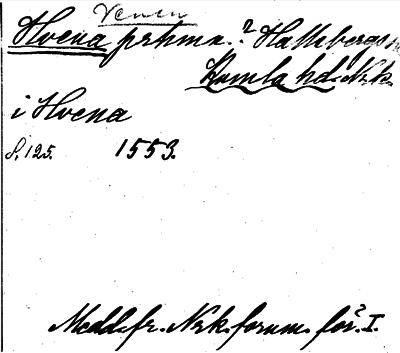 Venen
Hvena prhmn.? Hallsbergs sn
Kumla hd. Nrk.
i Hvena
S. 125. 1553.
Medd. fr. Nrk. fornm. för. I.